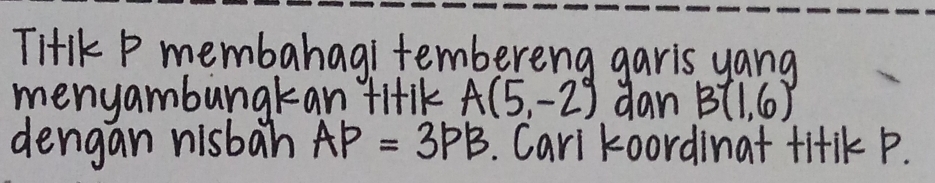 Titik P membahagi tembereng garis yang
menyambungkan titik A(5,-2) dan B(1,6)
dengan nisbah AP = 3PB. Cari koordinat titik P.